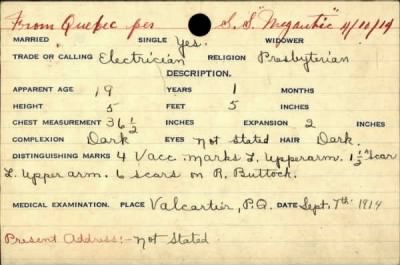 From Quebec per S.S. "Megantic" 4/10/14
MARRIED SINGLE Yes. WIDOWER
TRADE OR CALLING Electrician RELIGION Presbyterian
DESCRIPTION.
APPARENT AGE 19 YEARS 1 MONTHS
HEIGHT 5 FEET 5 INCHES
CHEST MEASUREMENT 36 1/2 INCHES EXPANSION 2 INCHES
COMPLEXION Dark EYES not stated HAIR Dark.
DISTINGUISHING MARKS 4 Vacc. marks L. upper arm. 1 1/2" scar
L. upper arm. 6 scars on R. Buttock.
MEDICAL EXAMINATION. PLACE Valcartier, P.Q. DATE Sept. 7th 1914
Present Address:- not stated